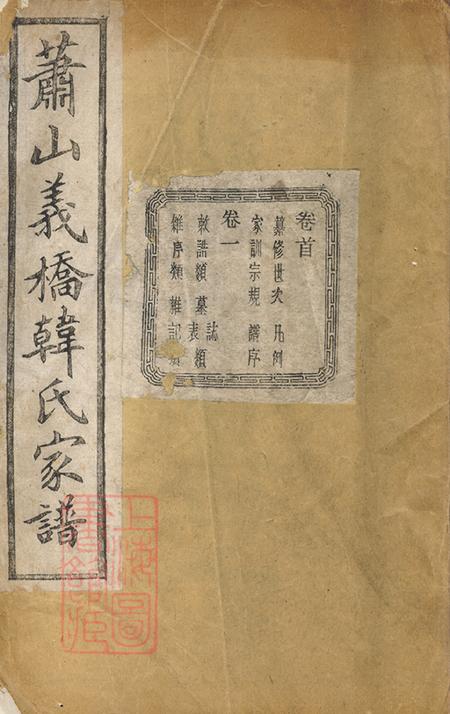 蕭山義橋韓氏家譜
卷首
纂修世次 凡例
家訓宗規 譜序
卷一
敕誥類 墓誌表類
雜序類 雜記類
上海圖書館藏